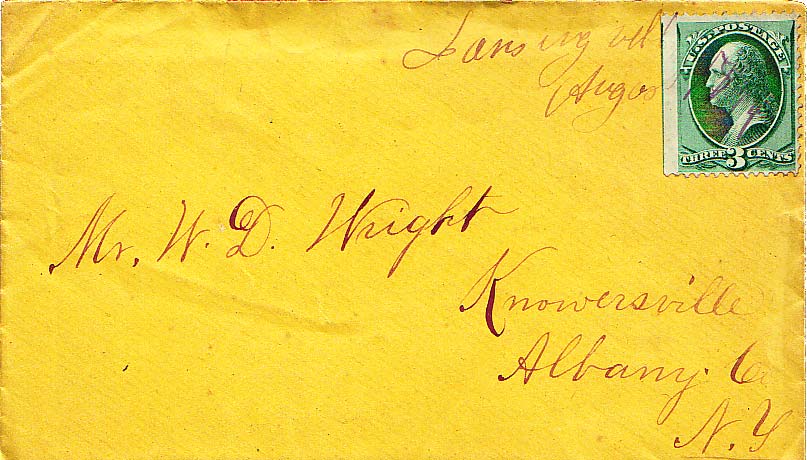 Lansingvill
Augus
U.S. POSTAGE
THREE 3 CENTS
Mr. W. D. Wright
Knowersville
Albany. Co
N. Y